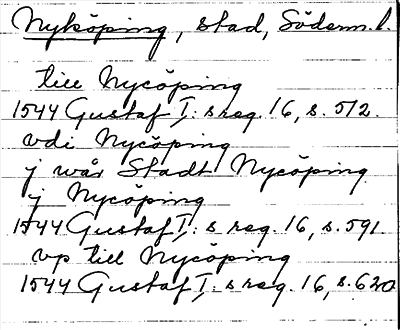 Nyköping, stad, Söderm.l.
till Nycöping
1544 Gustaf I: s reg. 16, s. 512.
vdi Nycöping
j wår Stadt Nycöping
j Nycöping
1544 Gustaf I: s reg. 16, s. 591
vp till Nycöping
1544 Gustaf I: s reg. 16, s. 620